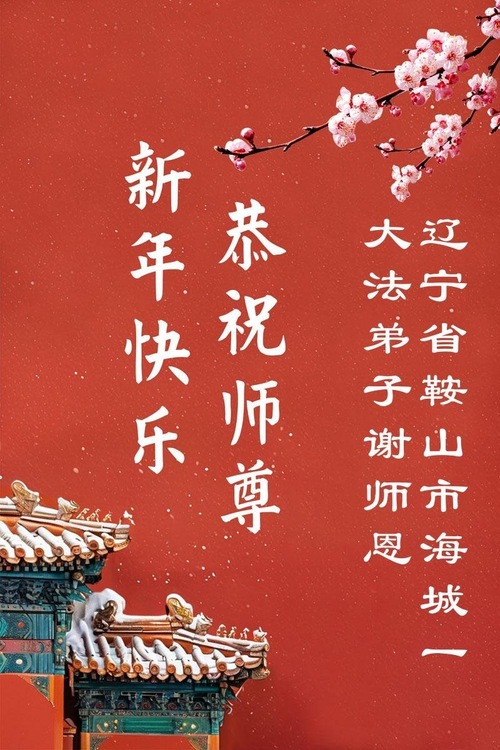 辽宁省鞍山市海城一
大法弟子谢师恩
恭祝师尊
新年快乐